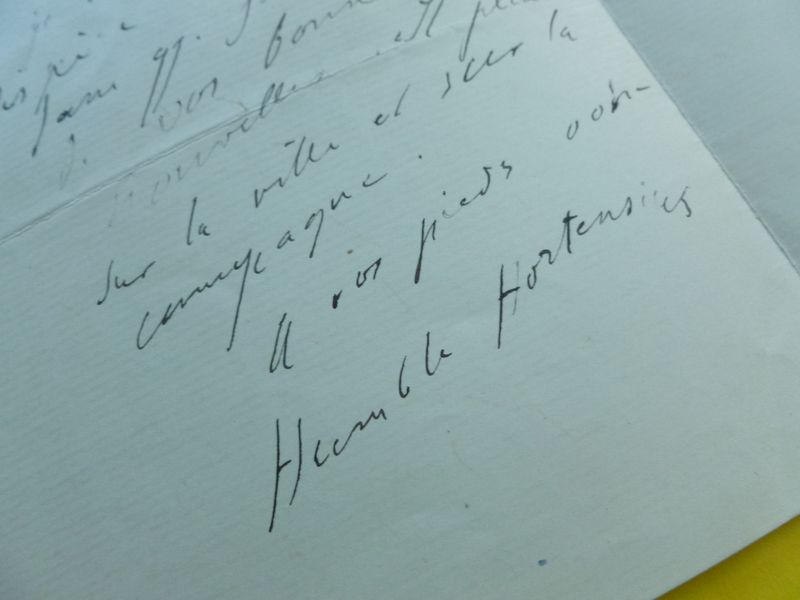 de vos bonnes
nouvelles et
sur la ville et sur la
campagne.
A vos pieds votre
Humble Hortensius